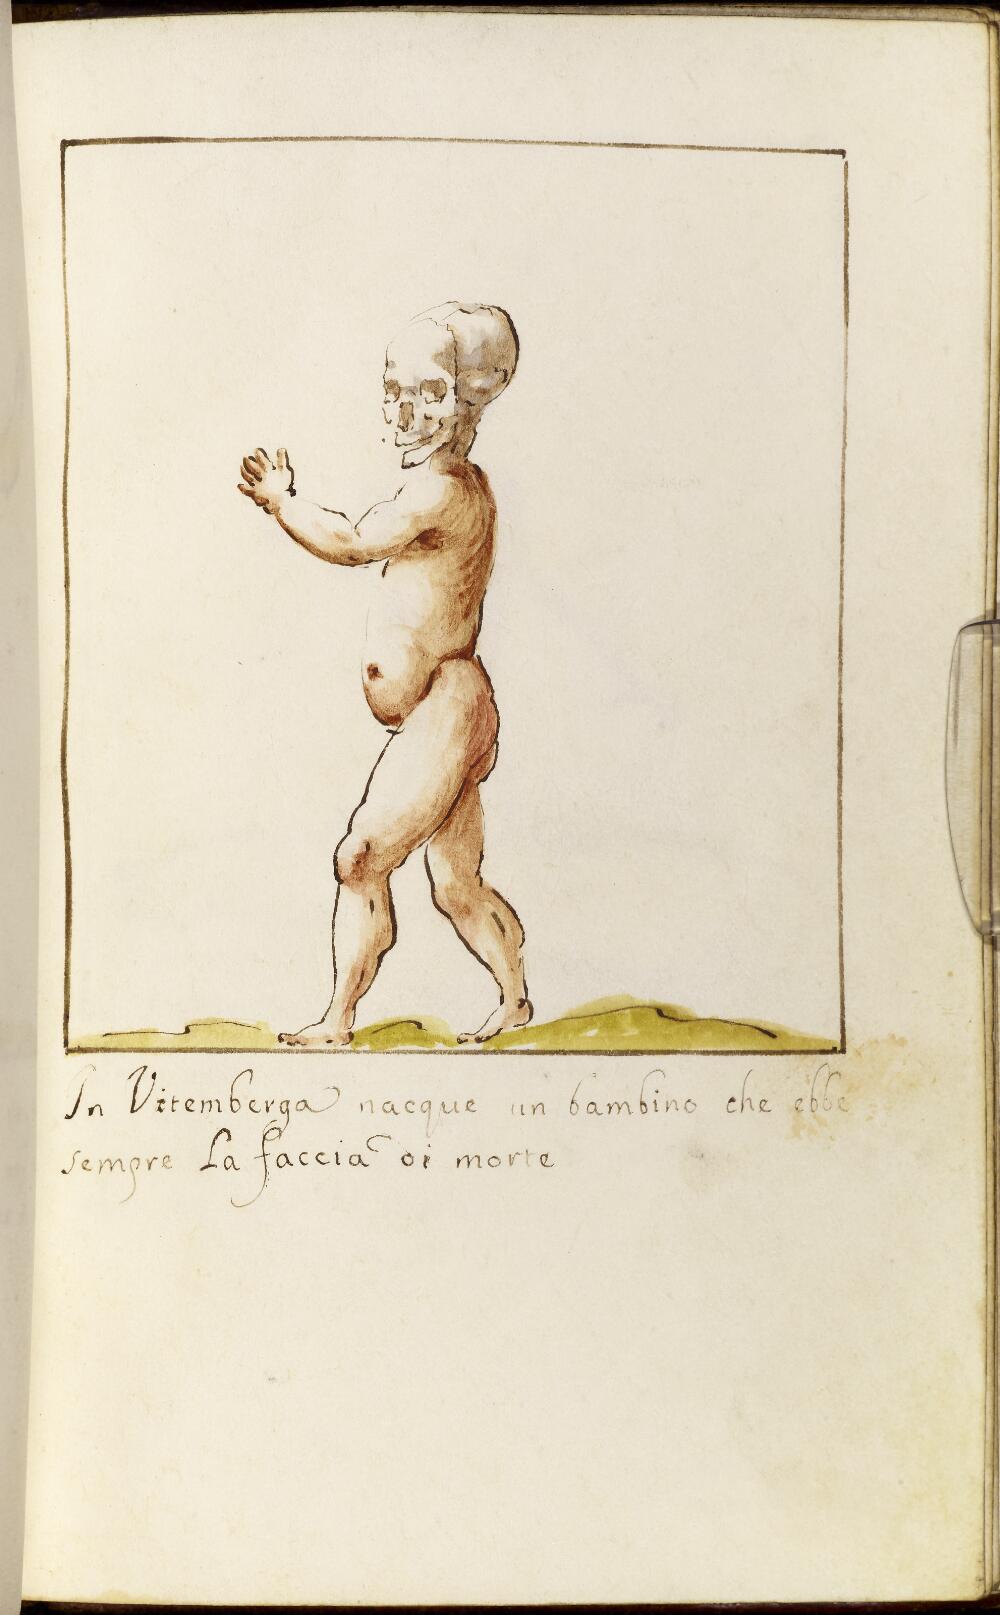 In Vitemberga nacque un bambino che ebbe
sempre La faccia di morte